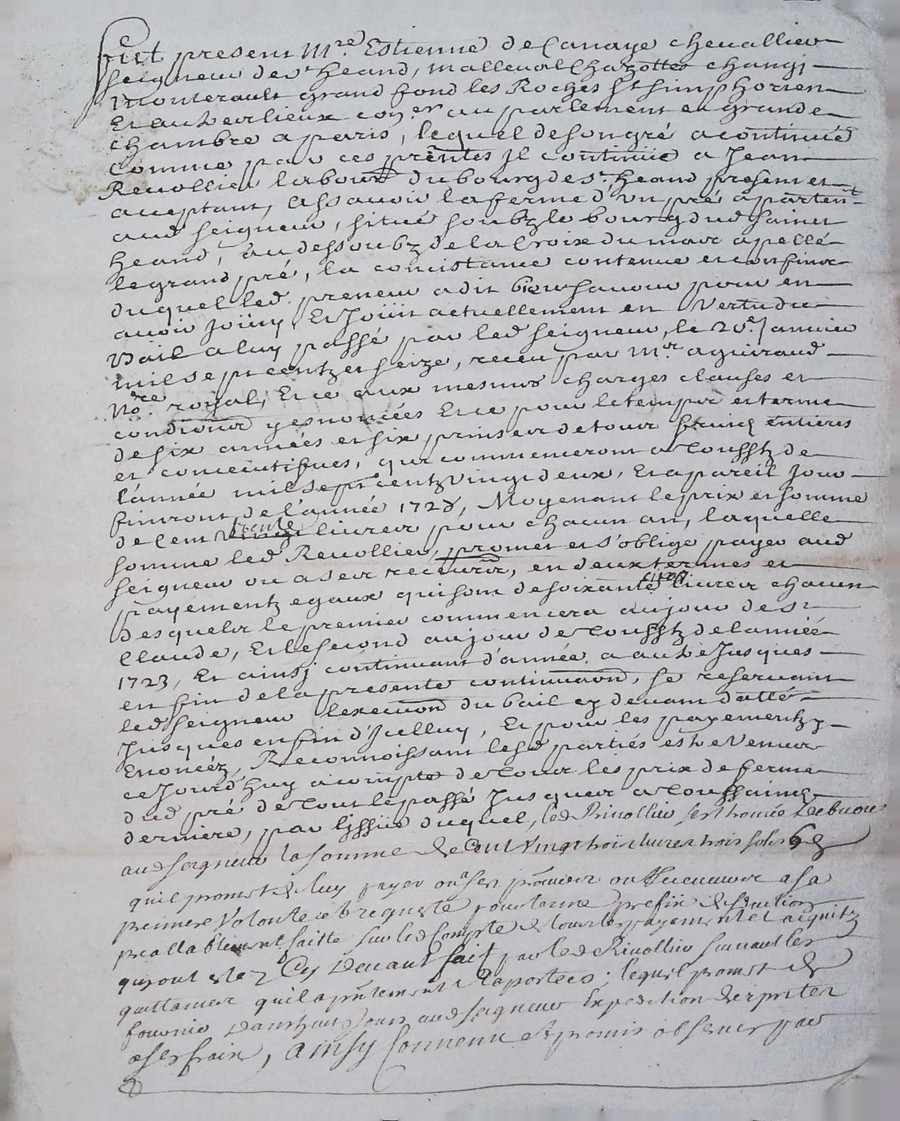 Fut present Mre Estienne de Canaye chevallier
seigneur de st heand, malleval Chazottes changi
monterault grand fond les Roches St simphorien
Et autres lieux coner au parlement en grande
chambre a paris, lequel de son gré a continué
comme par ces pñtes Il continüe a Jean
Revollier labour du bourg de st heand present et
acceptant, assavoir la ferme d'un pré apartent
aud seigneur, situé soubz le bourg dud saint
heand, au dessoubz de la Croix du mar apellé
le grand pré, la concistance contenue et confins
duquel led. preneur a dit bien savoir pour en
avoir joüy, Et Joüit actuellement en vertu du
Bail a luy passé par led seigneur, le 20e Janvier
mil sept centz et seize, receu par Mr aguiraud
Nore royal, Et ce aux mesmes charges clauses et
conditions y enoncées Et ce pour le temps et terme
de six années et six prinses de tour fruicq entieres
et concecutifves, qui commenceront a tousstz de
l'année mil sept centz vingt deux, Et a pareil jour
finiront de l'année 1728, Moyenant le prix et somme
de cent trente livres pour chacun an, laquelle
somme led Revollier, promet et s'oblige payer aud
seigneur ou a ses receveurs, en deux termes et
payementz egaux qui sont de soixante cinq livres chacun
desquels le premier commencera au jour de st
Claude, Et le second au jour de tousstz de l'année
1723, Et ainsj continuant d'année a autre Jusques
en fin de la presente continuaon, se reservant
led seigneur l'execuon du bail cy devant datté
Jusques en fin d'icelluy, Et pour les payementz y
Enoncéz, Reconnoissant lesd parties estre venues
ce Jourd'huy a compte de tous les prix de ferme
dud pré de tout le passé Jusques a toussaintz
derniere, par l'issüe duquel, led Rivollier sest trouvé debvoir
aud seigneur la somme de cent vingt trois livres trois sols 6 d
quil promet de luy payer ou a ses a sa
premiere volonté et requeste
preallablement faitte sur led Compte de tous les payement et acquitz
qui ont estez Cy devant fait par led Rivollier suivant les
quittances quil a pñtement Raportées; lequel promet de
fournir dans huit Jours aud seigneur Expedition des pntes
a ses fraix, Ainsy Convenu et promis observer par